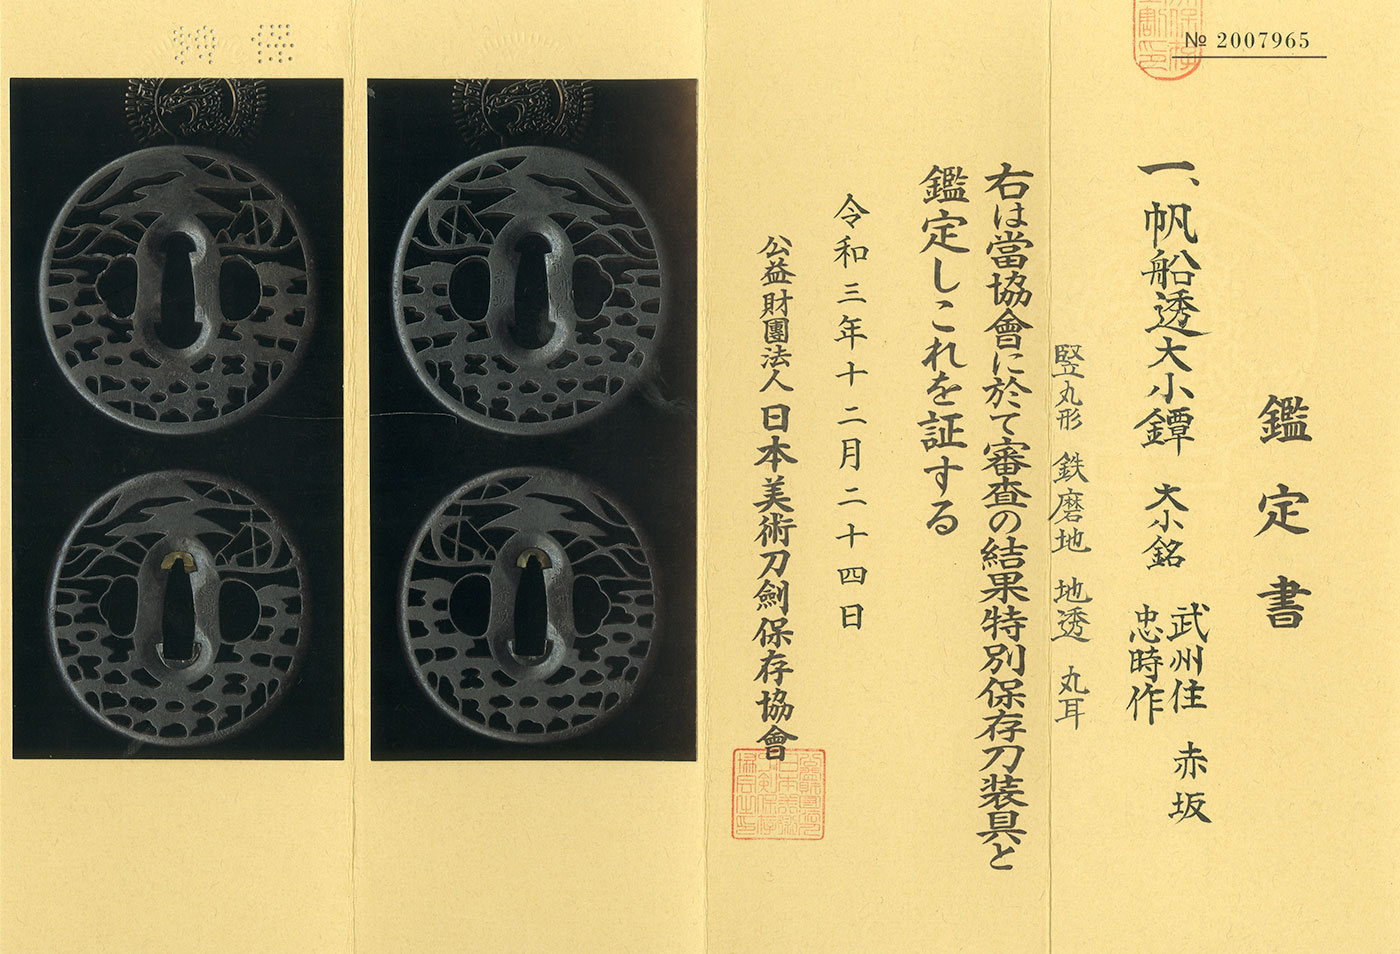 № 2007965
鑑定書
一、帆船透大小鐔 大小銘 武州住 赤坂
忠時作
竪丸形 鉄磨地 地透 丸耳
右は當協會に於て審査の結果特別保存刀装具と
鑑定しこれを証する
令和三年十二月二十四日
公益財團法人 日本美術刀劍保存協會
特保